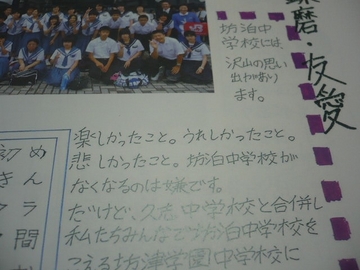 磨・友愛
坊泊中
学校には、
沢山の思い
出があり
ます。
楽しかったこと。うれしかったこと。
悲しかったこと。坊泊中学校が
なくなるのは嫌です。
だけど、久志中学校と合併し
私たちみんなで坊泊中学校を
こえる坊津学園中学校に
め
ん
ラ
間
き